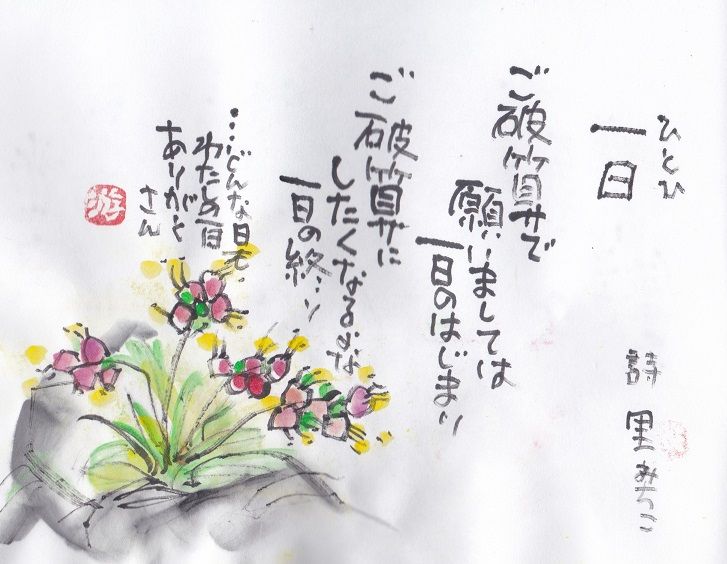 ひとひ
一日
詩 里みちこ
ご破算で
願いましては
一日のはじまり
ご破算に
したくなるよな
一日の終り
…どんな日も
わたの一日
ありがと
さん
游